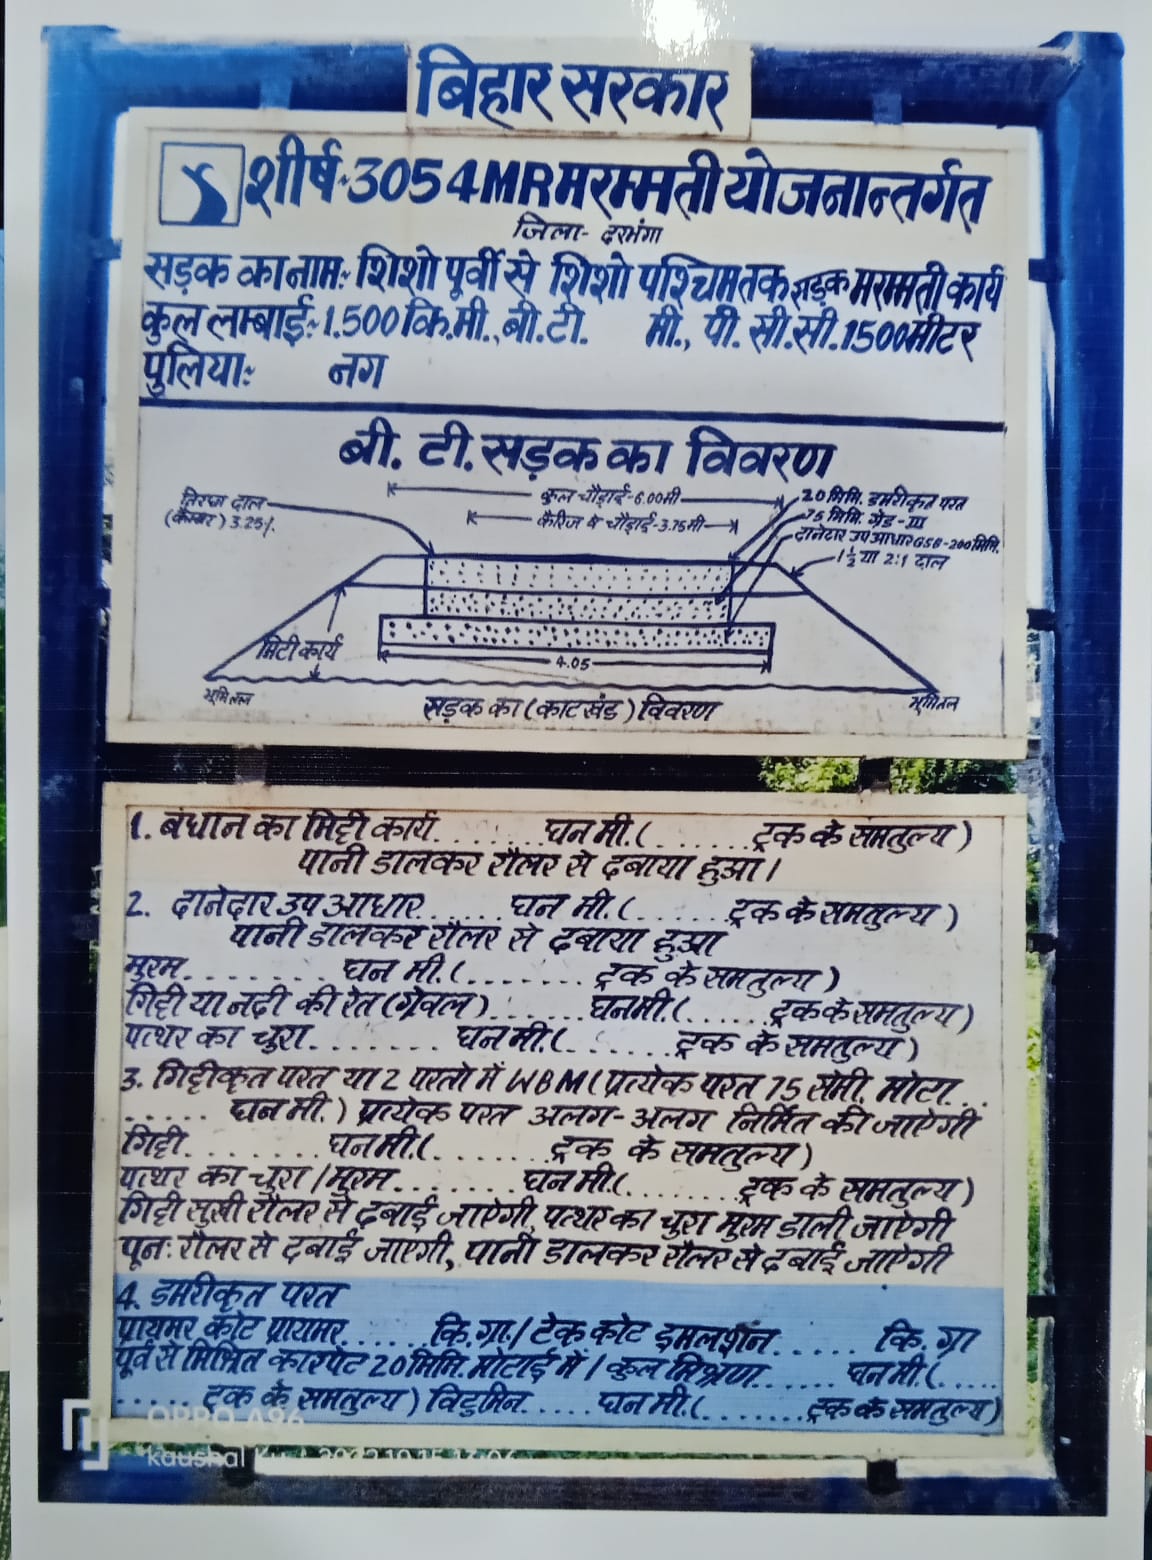 बिहार सरकार
शीर्ष-3054MR मरम्मती योजनान्तर्गत
जिला- दरभंगा
सड़क का नाम:- शिशो पूर्वी से शिशो पश्चिम तक सड़क मरम्मती कार्य
कुल लम्बाई:- 1.500 कि.मी., बी.टी. मी., पी. सी.सी. 1500 मीटर
पुलिया:- नग
बी. टी. सड़क का विवरण
तिरछा ढाल
(केम्बर) 3.25%
कुल चौड़ाई-6.00मी
कैरिज वे चौड़ाई-3.75मी
20 मिमि. डमरीकृत परत
75 मिमि. ग्रेड-III
दानेदार उप आधार GSB-200मिमि.
1 1/2 या 2:1 ढाल
मिटी कार्य
4.05
भूमितल
भूमितल
सड़क का (काटखंड) विवरण
1. बंधान का मिट्टी कार्य........घन मी.(.......ट्रक के समतुल्य)
पानी डालकर रौलर से दबाया हुआ।
2. दानेदार उप आधार......घन मी.(......ट्रक के समतुल्य)
पानी डालकर रौलर से दबाया हुआ
मुरम..........घन मी.(........ट्रक के समतुल्य)
गिट्टी या नदी की रेत (ग्रेवल).......घनमी.(......ट्रक के समतुल्य)
पत्थर का चुरा.........घनमी.(.......ट्रक के समतुल्य)
3. गिट्टीकृत परत या 2 परतो में WBM (प्रत्येक परत 75 सेमी. मोटा...
.....घन मी.) प्रत्येक परत अलग-अलग निर्मित की जाऐगी
गिट्टी.........घनमी.(........ट्रक के समतुल्य)
पत्थर का चुरा / मुरम........घनमी.(........ट्रक के समतुल्य)
गिट्टी सुखी रौलर से दबाई जाऐगी, पत्थर का चुरा मुरम डाली जाऐगी
पून: रौलर से दबाई जाएगी, पानी डालकर रौलर से दबाई जाऐगी
4. डमरीकृत परत
प्रायमर कोट प्रायमर......कि.ग्रा./ टेक कोट इमलशन......कि. ग्रा
पूर्व से मिश्रित कारपेट 20मिमि. मोटाई में / कुल मिश्रण......घन मी.(.....
......ट्रक के समतुल्य) विटुमिन.....घन मी.(.......ट्रक के समतुल्य)
OPPO A96
Kaushal